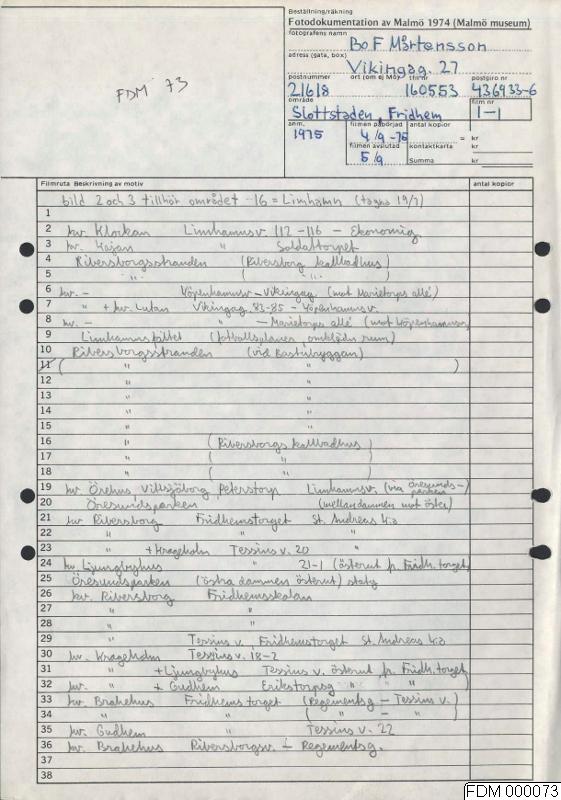 Beställning/räkning
Fotodokumentation av Malmö 1974 (Malmö museum)
fotografens namn
Bo F Mårtensson
adress (gata, box)
Vikingag. 27
postnummer ort (om ej Mö) tfn nr postgiro nr
21618 160553 436933-6
område film nr
Slottstaden, Fridhem 1-1
anm. filmen påbörjad antal kopior
1975 4/9 -75 = kr
filmen avslutad kontaktkarta kr
5/9 Summa kr
FDM 73
Filmruta Beskrivning av motiv antal kopior
bild 2 och 3 tillhör området -16 = Limhamn (tagna 19/7)
1
2 kv. Klockan Limhamnsv. 112-116 - Ekonomig.
3 kv. " Soldattorpet
4 Ribersborgsstranden (Ribersborg kallbadhus)
5 " "
6 kv. - Köpenhamnsv - Vikingag. (mot Marietorps allé)
7 " + kv. Lutan Vikingag. 83-85 - Köpenhamnsv.
8 kv. - " - Marietorps allé (mot Köpenhamnsv)
9 Limhamnsfältet (fotbollsplaner, omklädn rum)
10 Ribersborgsstranden (vid Bastubyggan)
11 ( " " )
12 " "
13 " "
14 " "
15 " "
16 " (Ribersborgs kallbadhus)
17 " ( " )
18 " ( " )
19 kv Örehus, Vittsjöborg, Peterstorp Limhamnsv. (via Öresunds-parken
20 Öresundsparken (mellandammen mot öster)
21 kv Ribersborg Fridhemstorget St. Andreas k:a
22 " " "
23 " + Krageholm Tessins v. 20 "
24 kv. Ljungbyhus " 21-1 (österut fr. Fridh. torget)
25 Öresundsparken (östra dammen österut) staty
26 kv. Ribersborg Fridhemsskolan
27 " "
28 " "
29 " Tessins v. Fridhemstorget St. Andreas k:a
30 kv. Krageholm Tessins v. 18-2
31 " + Ljungbyhus Tessins v. österut fr. Fridh. torget
32 kv. " + Gudhem Erikstorpsg " " "
33 kv. Brahehus Fridhemstorget (Regementsg - Tessins v.)
34 " " ( " - " )
35 kv. Gudhem Tessins v. 22
36 kv. Brahehus Ribersborgsv. - Regementsg.
37
38
FDM 000073